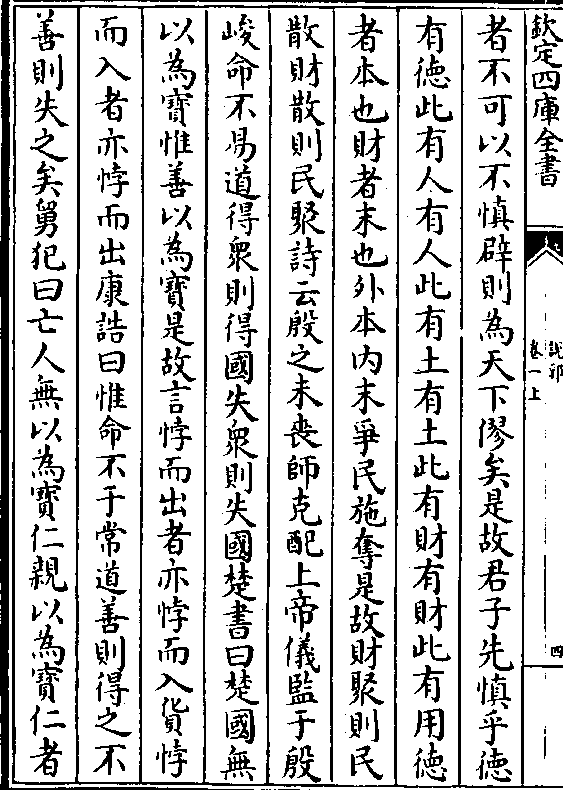 欽定四庫全書
說郛
卷一上
四
者不可以不慎辟則為天下僇矣是故君子先慎乎德
有德此有人有人此有土有土此有財有財此有用德
者本也財者末也外本内末爭民施奪是故財聚則民
散財散則民聚詩云殷之未喪師克配上帝儀監于殷
峻命不易道得衆則得國失衆則失國楚書曰楚國無
以為寶惟善以為寶是故言悖而出者亦悖而入貨悖
而入者亦悖而出康誥曰惟命不于常道善則得之不
善則失之矣舅犯曰亡人無以為寶仁親以為寶仁者